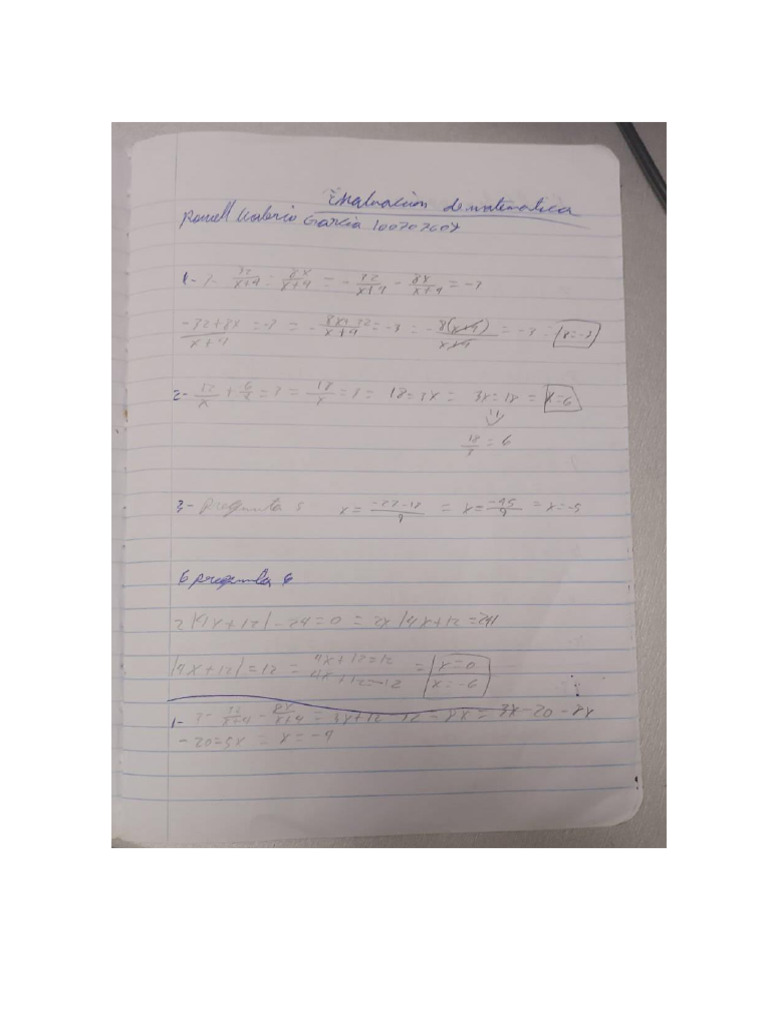 Evaluación de matematica
Garcia 100707607
1- 3- 32/x+4 = 8x/x+4 = - 32/x+4 - 8x/x+4 = -3
-32+8x/x+4 = -3 = - 8x+32/x+4 = -3 = - 8(x+4)/x+4 = -3 = 8=-3
2- 12/x + 6/x = 3 = 18/x = 3 = 18=3x = 3x=18 = x=6
18/3 = 6
3- pregunta 5 x = -27-18/9 = x= -45/9 = x=-5
6 pregunta 6
2|4x+12|-24=0 = 2x|4x+12=24|
|4x+12|=12 = 4x+12=12 = x=0
4x+12=-12 x=-6
1- 3- 32/x+4 - 8x/x+4 = 3x+12-12-8x = 3x-20-8x
-20=5x = x=-4